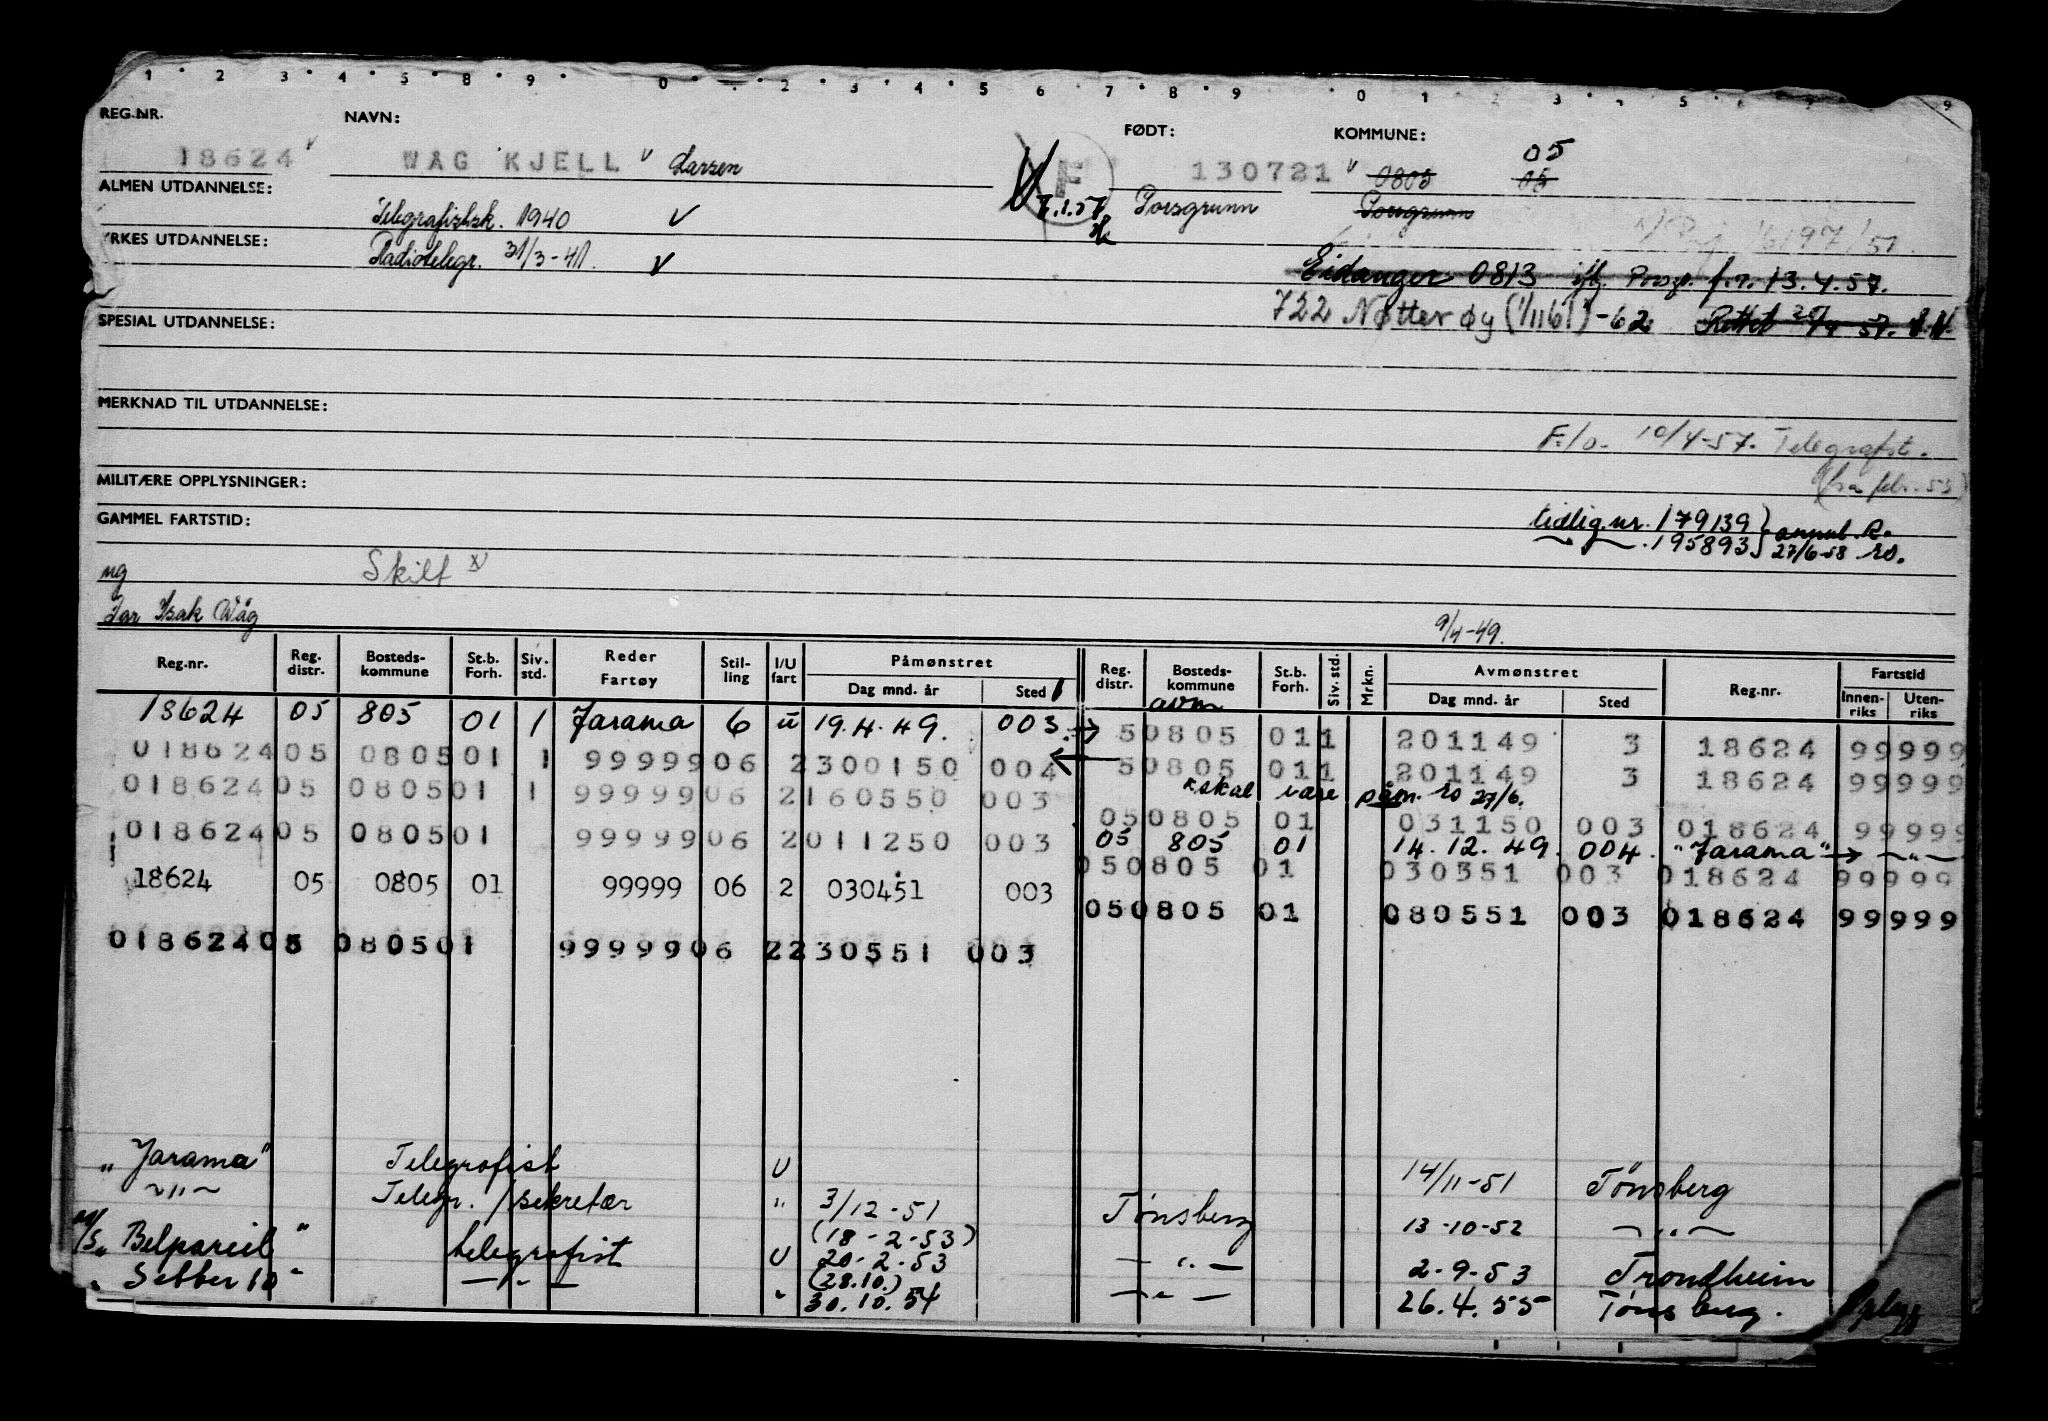 1 2 3 4 5 8 9 0 2 3 4 5 6 7 8 9 0 1 2 3 5 9
REG.NR. NAVN: FØDT: KOMMUNE:
18624 WÅG KJELL Larsen F 130721 0805 05 05
ALMEN UTDANNELSE: 7.1.57 Porsgrunn Porsgrunn
Telegrafistsk. 1940
YRKES UTDANNELSE:
Radiotelegr. 31/3-41.
Eidanger 0813 Porsgr. f.r. 13.4.57.
722 Nøtterøy (1/1161)-62 Rettet
SPESIAL UTDANNELSE:
MERKNAD TIL UTDANNELSE:
F./o. 10/4-57. Telegrafist.
(fra febr. 53)
MILITÆRE OPPLYSNINGER:
GAMMEL FARTSTID:
tidlig. nr. 179139 } annul.
195893 } 27/6-58 ro.
Skilt x
ug
Far Isak Wåg 9/4-49.
Reg.nr. Reg. distr. Bosteds- kommune St.b. Forh. Siv. std. Reder Fartøy Stil- ling I/U fart Påmønstret Dag mnd. år Sted Reg. distr. Bosteds- kommune St.b. Forh. Siv. std. Mrkn. Avmønstret Dag mnd. år Sted Reg.nr. Fartstid Innen- riks Uten- riks
avm
18624 05 805 01 1 Jarama 6 u 19.4.49. 003. → 50805 011 201149 3 18624 99999
018624 05 080501 1 99999 06 2 300150 004 ← 50805 011 201149 3 18624 99999
x skal være påm. ro 27/6.
018624 05 080501 1 99999 06 2 160550 003 050805 01 031150 003 018624 99999
018624 05 080501 99999 06 2 011250 003 05 805 01 14.12.49. 004. "Jarama" → -"-
050805 01 030351 003 018624 99999
18624 05 0805 01 99999 06 2 030451 003 050805 01 080551 003 018624 99999
018624 05 080501 99999 06 2 230551 003
"Jarama" Telegrafist U 14/11-51 Tønsberg
-"- Telegr./sekretær " 3/12-51 Tønsberg 13-10-52 -"-
(18-2-53)
M/S "Belpareil" telegrafist U 20-2-53 -"- 2-9-53 Trondheim
(28.10.)
" -"- " 30.10.54 -"- 26.4.55 Tønsberg.